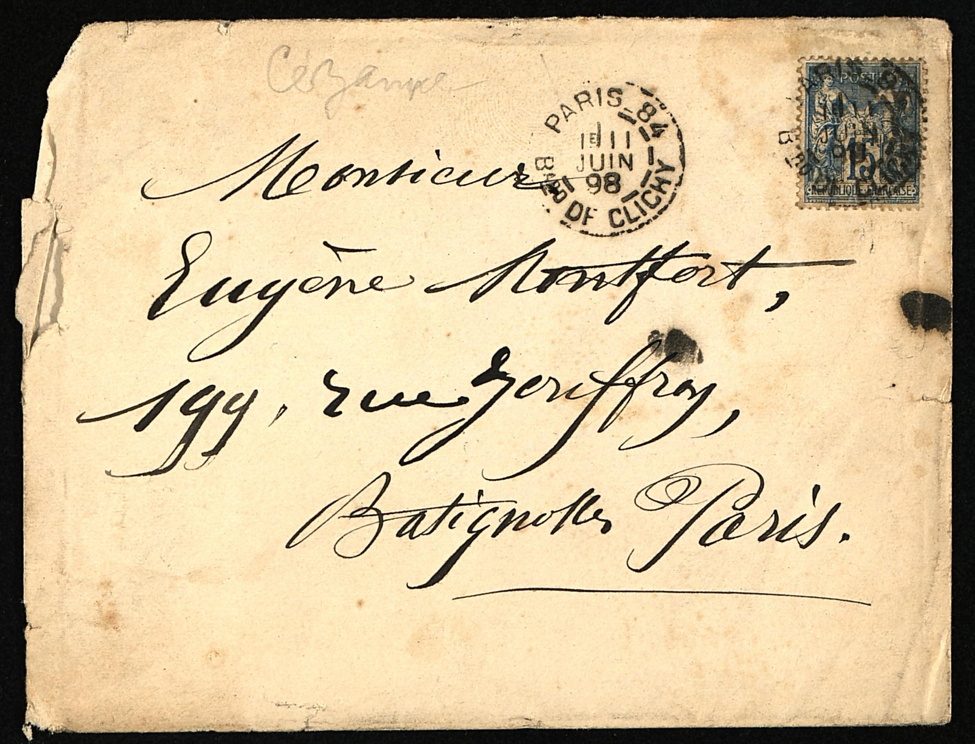 Cézanne
PARIS_84
1E 11
JUIN
98
BARD DE CLICHY
POSTE
15
REPUBLIQUE FRANCAISE
Monsieur
Eugène Montfort,
199, rue Jouffroy,
Batignolles Paris.